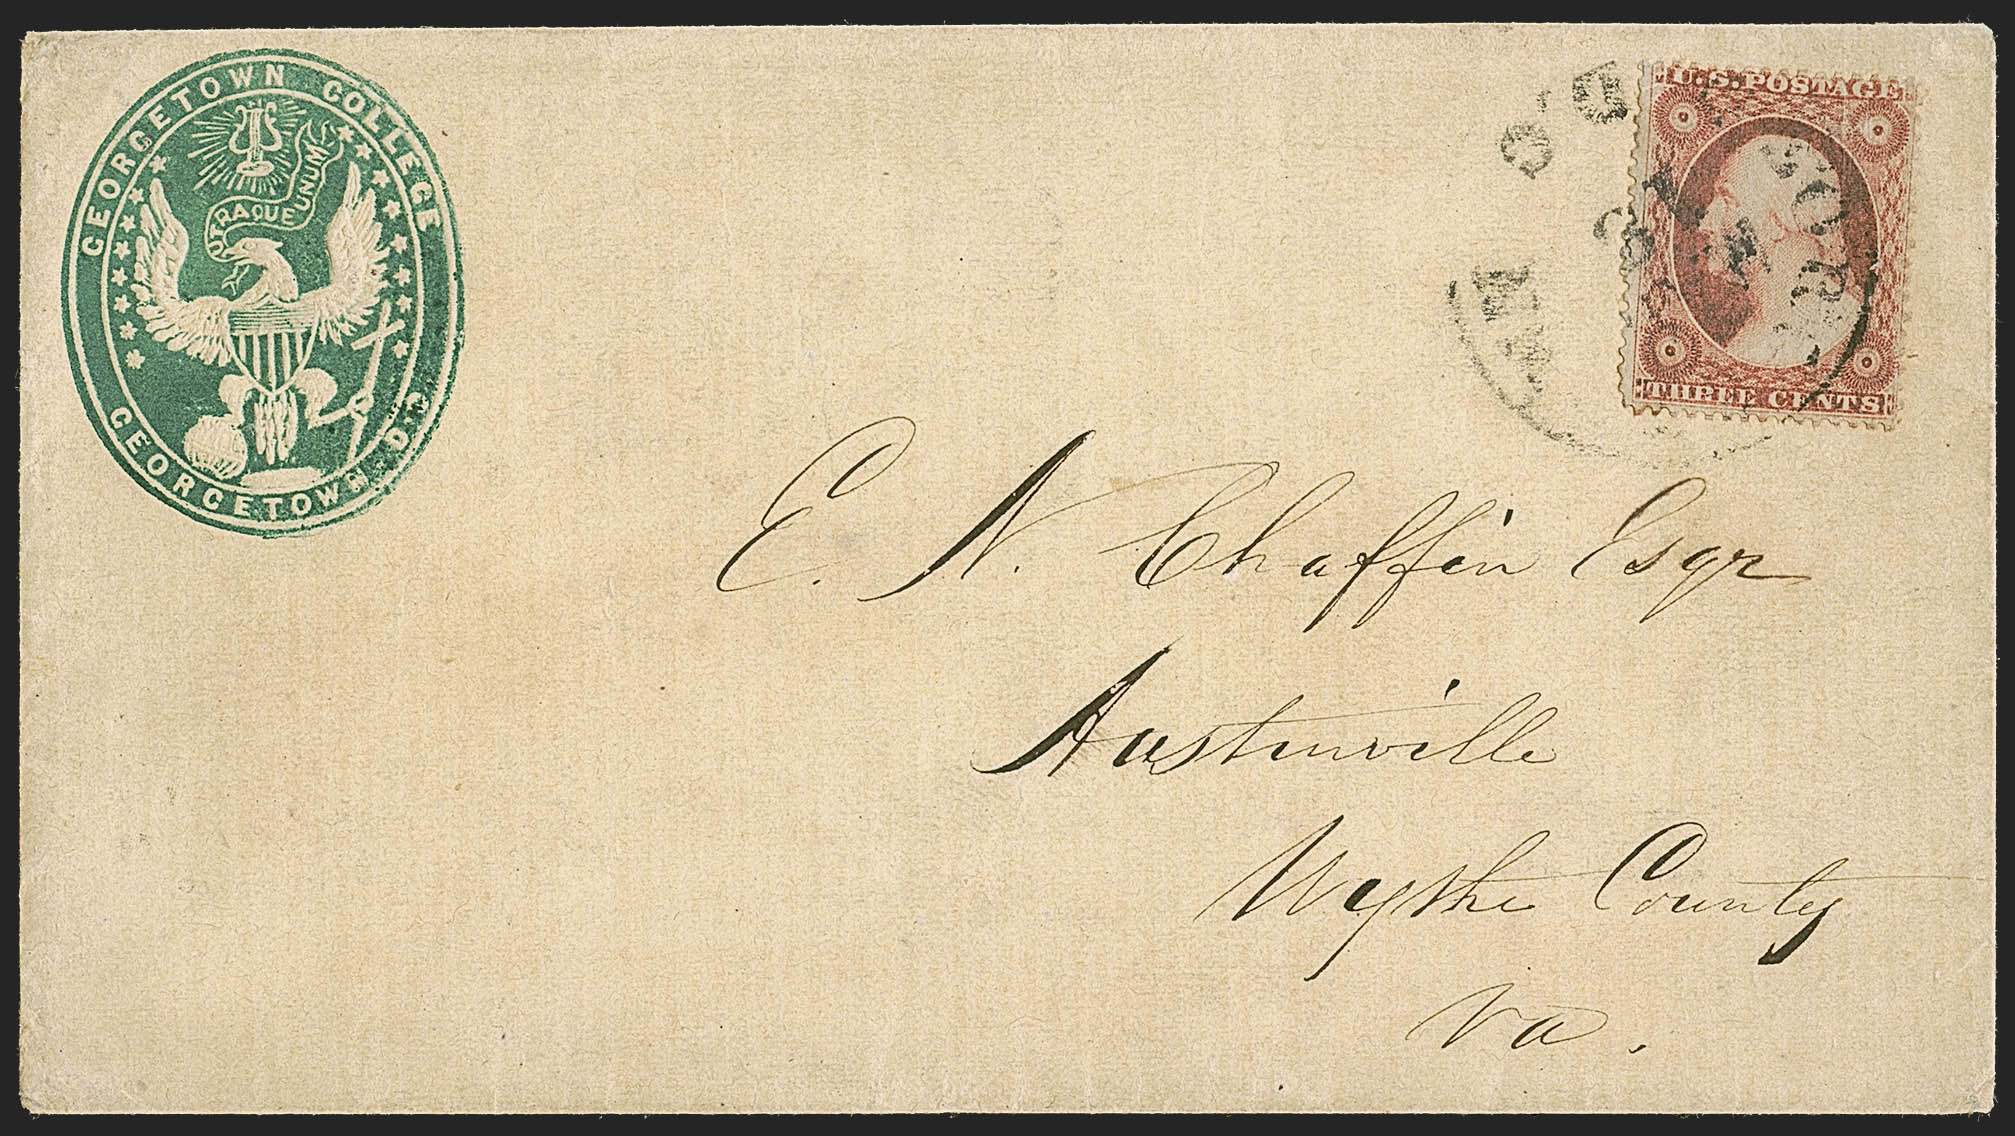 GEORGETOWN COLLEGE
UTRAQUE UNUM
GEORGETOWN. D.C.
U.S. POSTAGE
THREE CENTS
E. N. Chaffin Esqr
Austinville
Wythe County
Va.